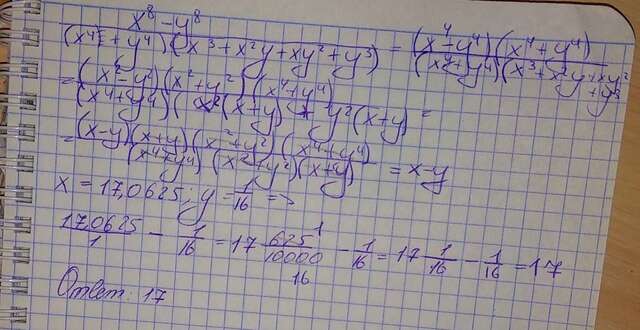 x⁸ - y⁸ / (x⁴ + y⁴)(x³ + x²y + xy² + y³) = (x⁴ - y⁴)(x⁴ + y⁴) / (x⁴ + y⁴)(x³ + x²y + xy² + y³)
= (x² - y²)(x² + y²)(x⁴ + y⁴) / (x⁴ + y⁴)(x²(x + y) + y²(x + y) =
= (x - y)(x + y)(x² + y²)(x⁴ + y⁴) / (x⁴ + y⁴)(x² + y²)(x + y) = x - y
x = 17,0625; y = 1/16 =>
17,0625/1 - 1/16 = 17 625/10000 - 1/16 = 17 1/16 - 1/16 = 17
Ответ: 17